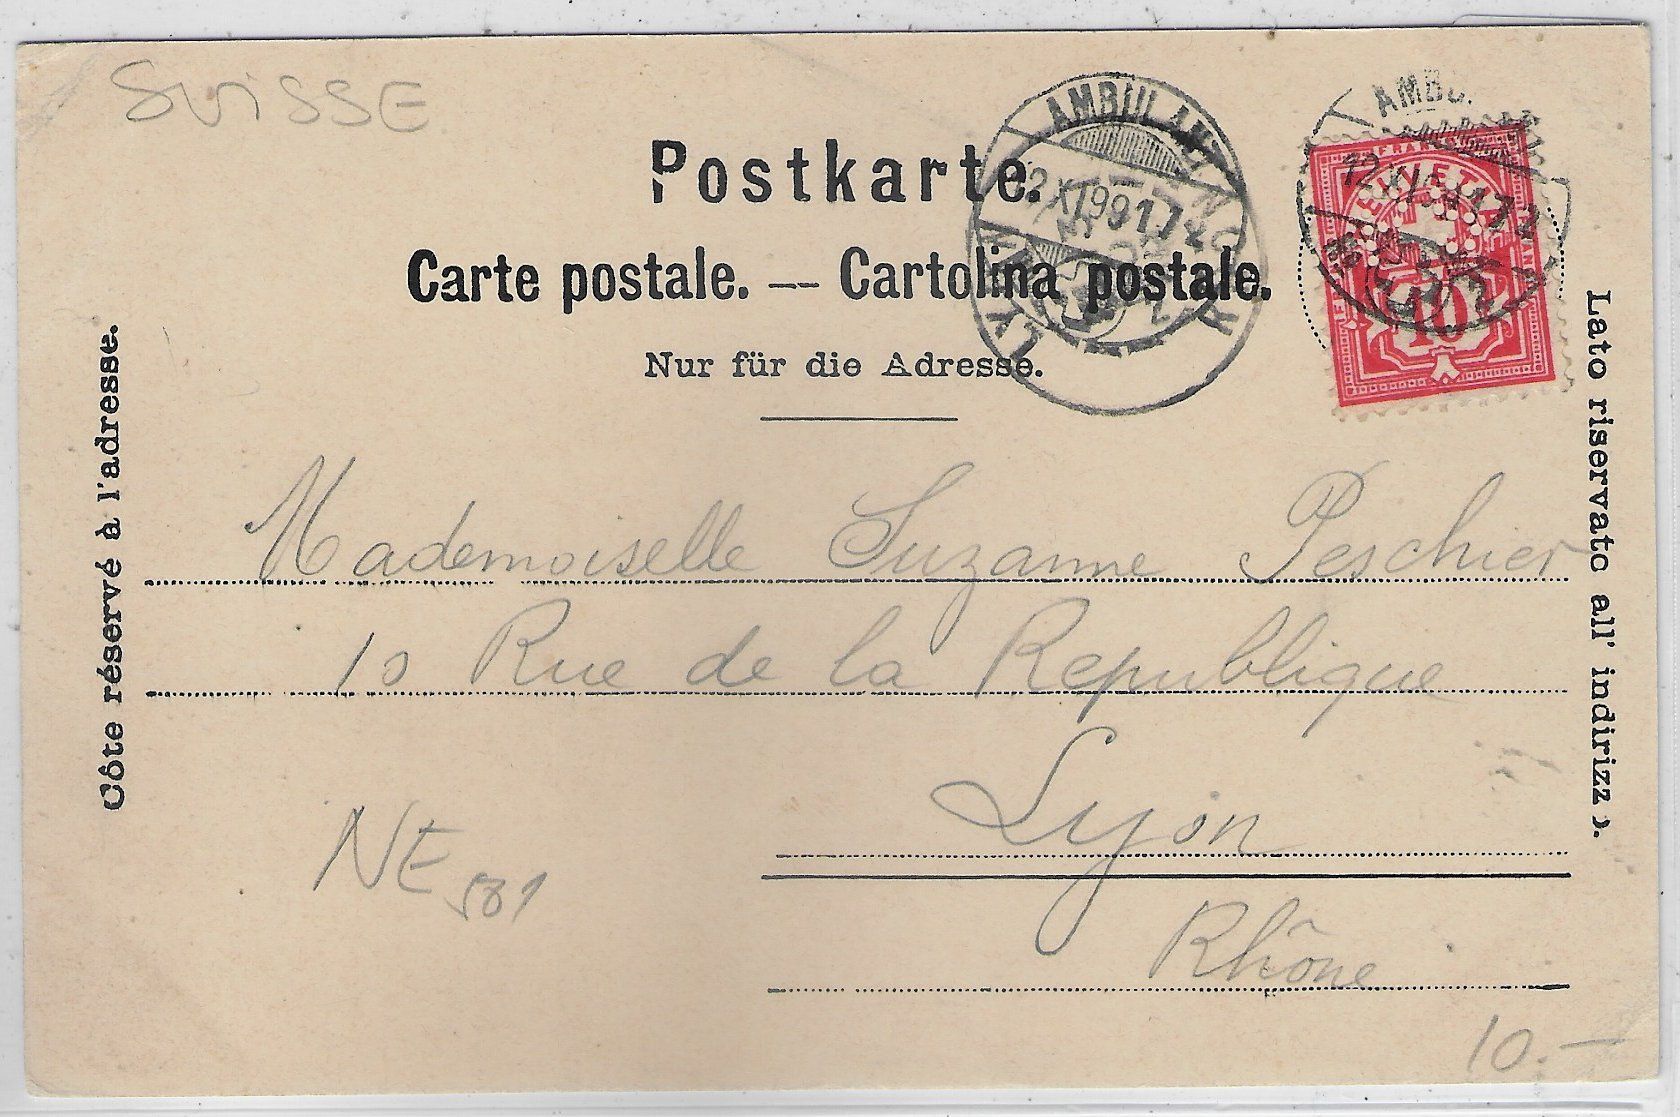 SUISSE
Postkarte.
Carte postale. — Cartolina postale.
Nur für die Adresse.
Côte réservé à l'adresse.
Lato riservato all' indirizzo.
AMBULANT
12 XI 99 17
AMBU
12 XI 17
FRANCO
HELVETIA
10
Mademoiselle Suzanne Peschier
10 Rue de la Republique
Lyon
Rhône
NE 581
10.—